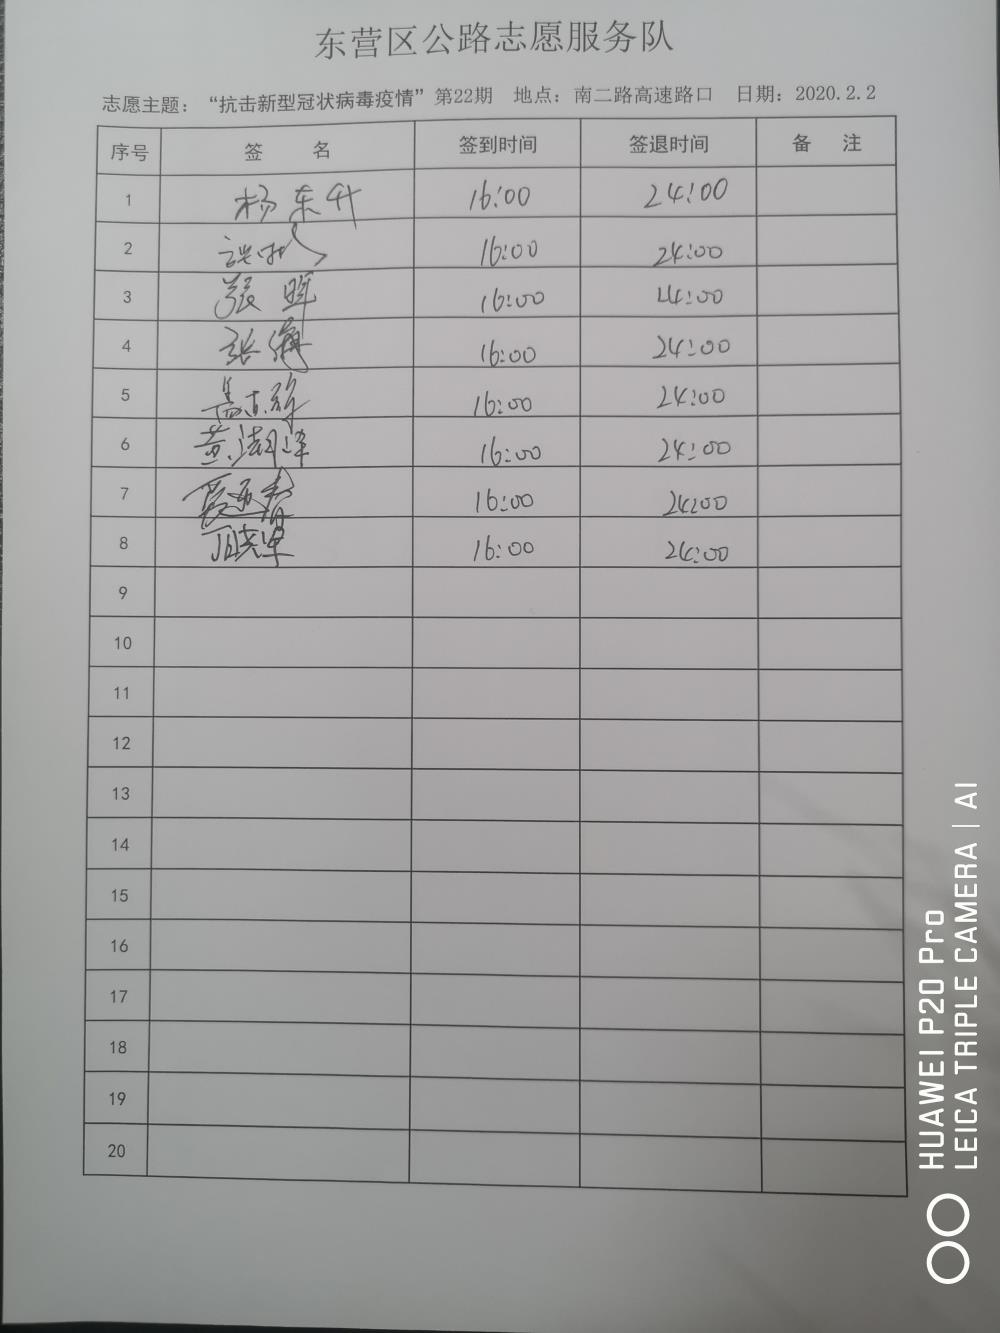 东营区公路志愿服务队
志愿主题：“抗击新型冠状病毒疫情”第22期 地点：南二路高速路口 日期：2020.2.2
序号 签 名 签到时间 签退时间 备 注
1 杨东升 16:00 24:00
2 16:00 24:00
3 张晖 16:00 24:00
4 张 16:00 24:00
5 16:00 24:00
6 黄 16:00 24:00
7 16:00 24:00
8 16:00 24:00
9
10
11
12
13
14
15
16
17
18
19
20
HUAWEI P20 Pro
LEICA TRIPLE CAMERA | AI